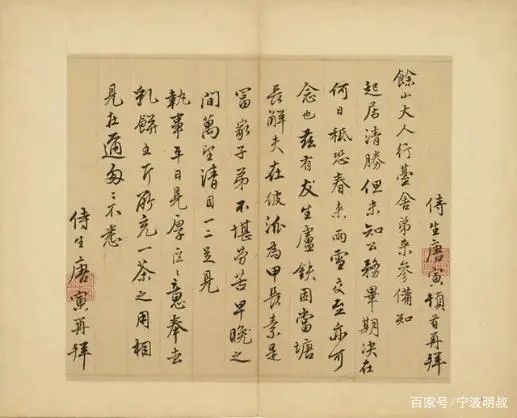 侍生唐寅頓首再拜
餘山大人行臺舍弟来參備知
起居清勝但未知公務畢期决在
何日秪恐春来雨雪交至亦可
念也茲有友生盧鉄因當塘
長解夫在彼派為甲長素是
冨家子弟不堪勞苦早晚之
間萬望清目一二足見
執事平日見厚意奉去
乳餅五斤聊充一茶之用相
見在邇匆〻不悉
侍生唐寅再拜
百家号/宁波明叔